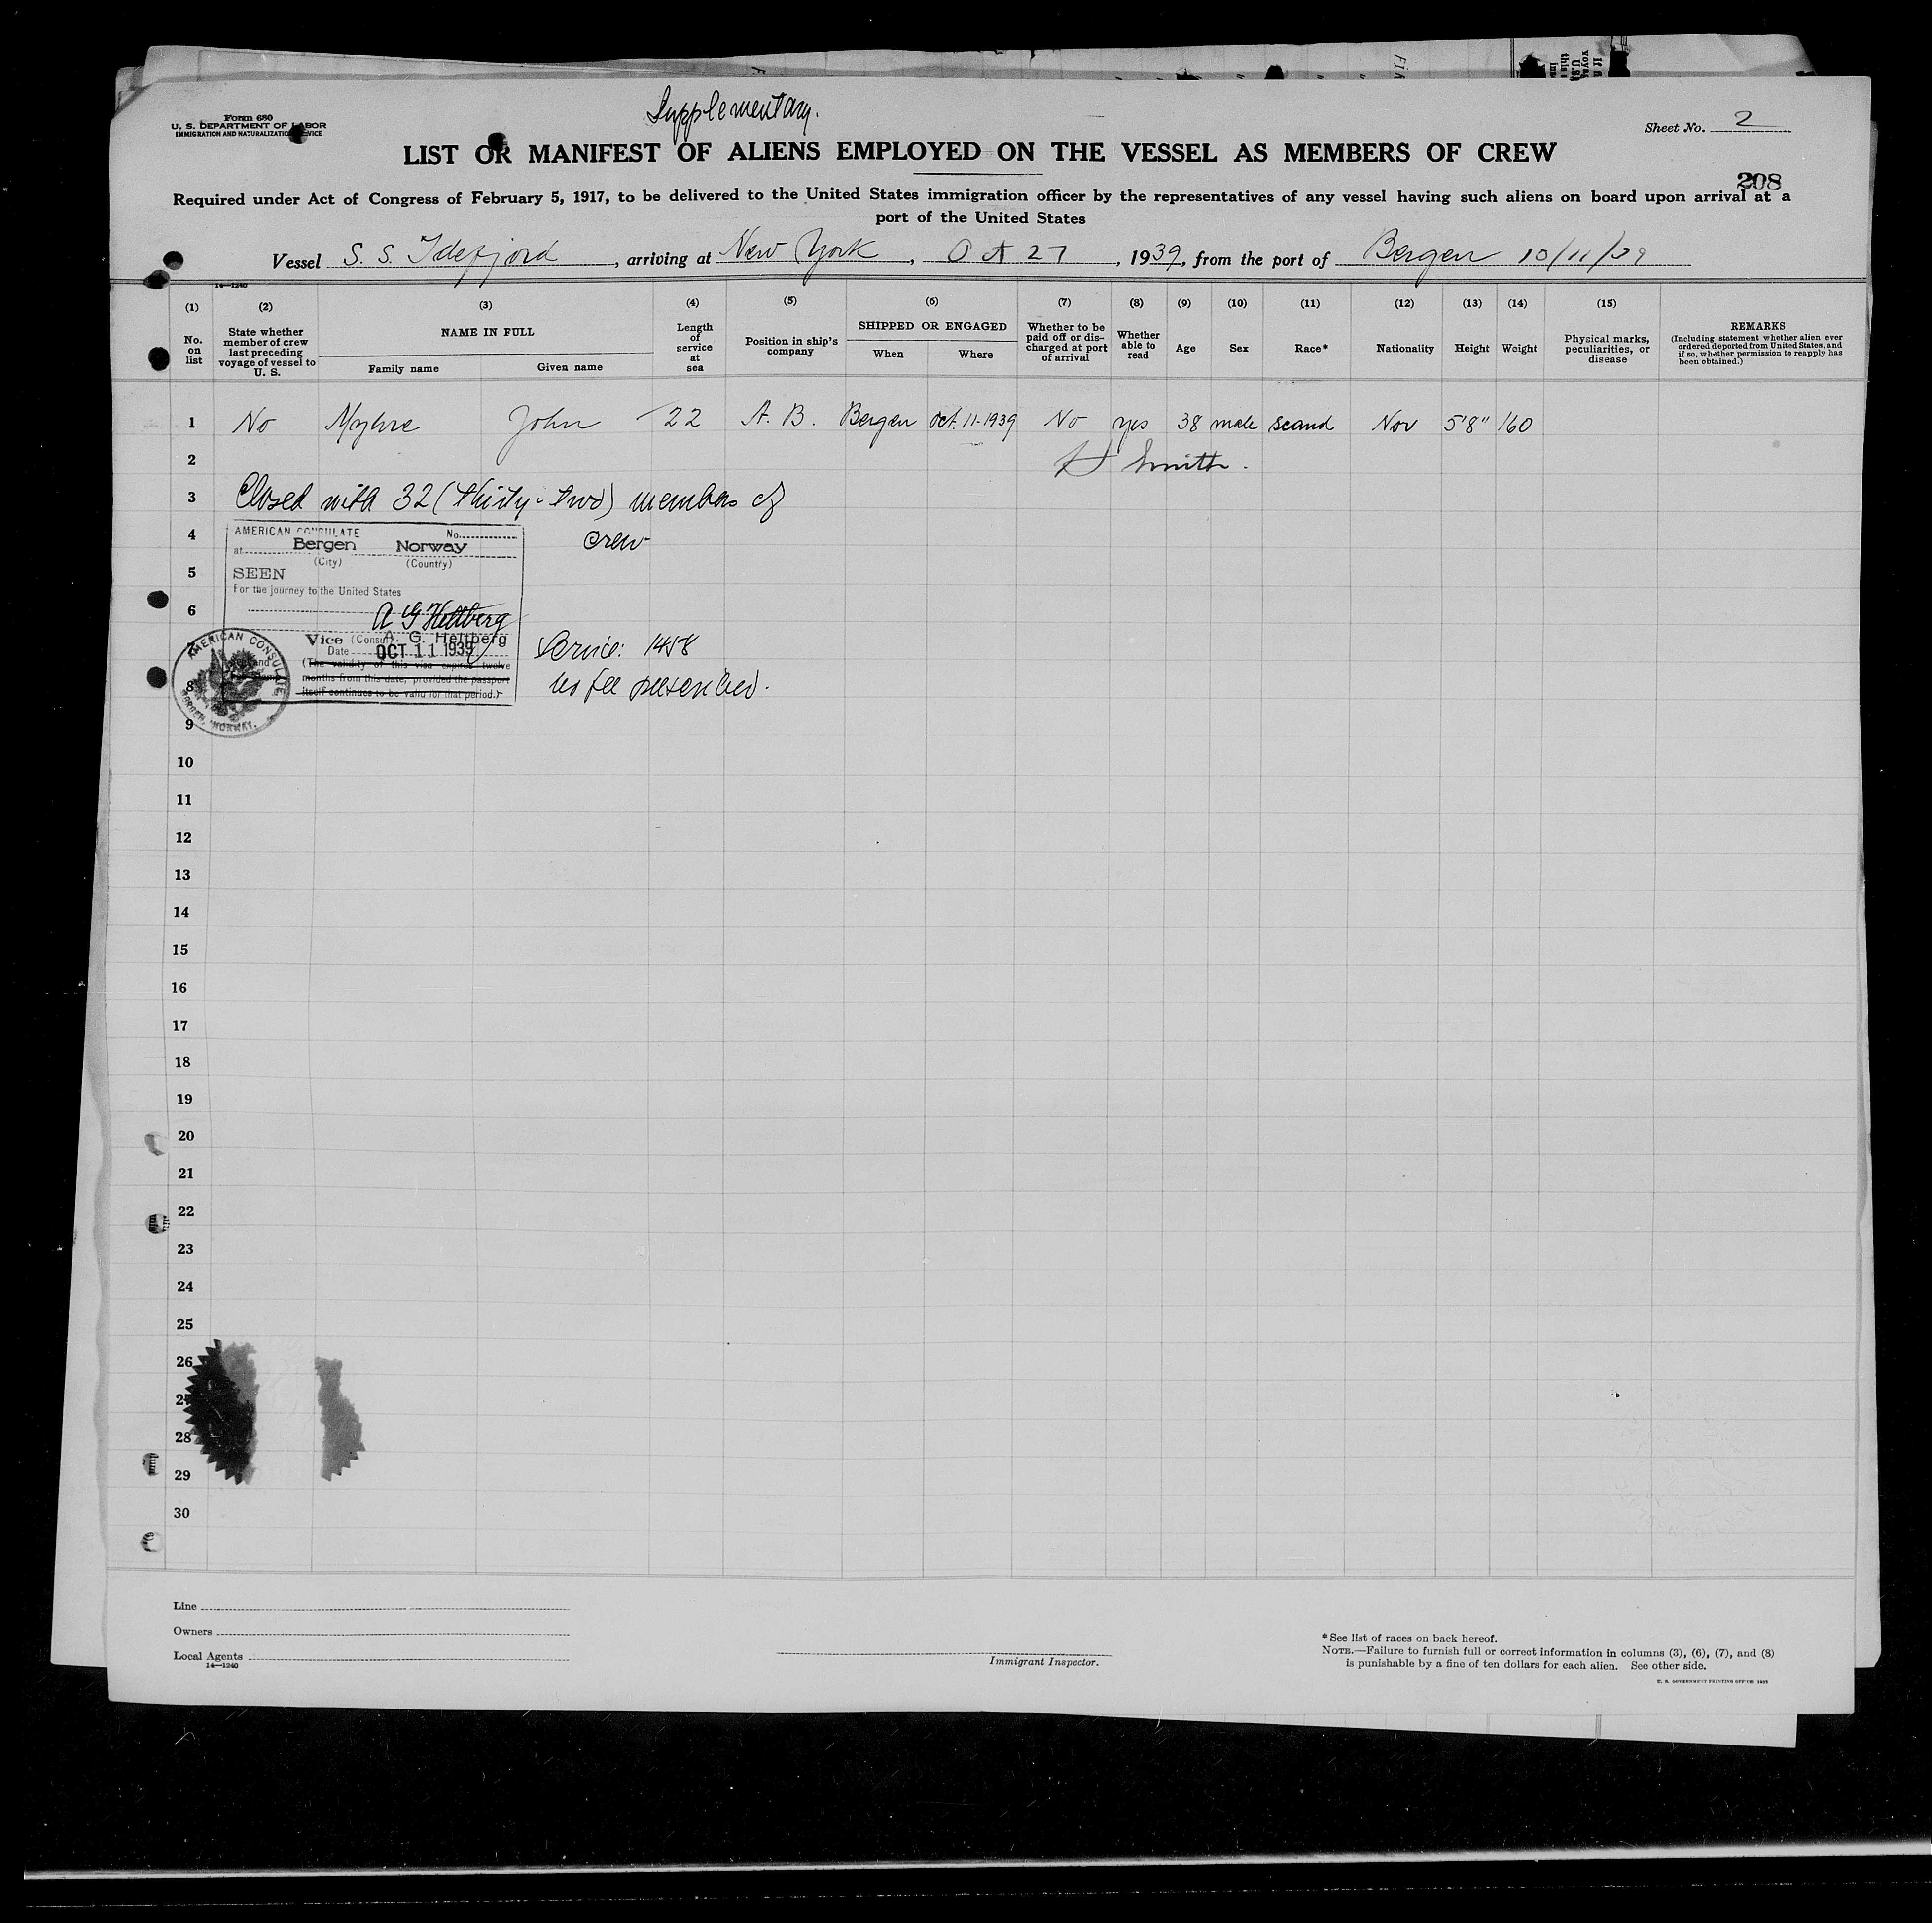 Supplementary.
Form 680
U. S. DEPARTMENT OF LABOR
IMMIGRATION AND NATURALIZATION SERVICE
Sheet No. 2
LIST OR MANIFEST OF ALIENS EMPLOYED ON THE VESSEL AS MEMBERS OF CREW
208
Required under Act of Congress of February 5, 1917, to be delivered to the United States immigration officer by the representatives of any vessel having such aliens on board upon arrival at a
port of the United States
Vessel S. S. Idefjord, arriving at New York, Oct 27, 1939, from the port of Bergen 10/11/39
14—1240
(1) No. on list
(2) State whether member of crew last preceding voyage of vessel to U. S.
(3) NAME IN FULL
Family name Given name
(4) Length of service at sea
(5) Position in ship's company
(6) SHIPPED OR ENGAGED
When Where
(7) Whether to be paid off or discharged at port of arrival
(8) Whether able to read
(9) Age
(10) Sex
(11) Race*
(12) Nationality
(13) Height
(14) Weight
(15) Physical marks, peculiarities, or disease
REMARKS
(Including statement whether alien ever ordered deported from United States, and if so, whether permission to reapply has been obtained.)
1 No Myhre John 22 A. B. Bergen Oct. 11-1939 No yes 38 male scand Nov 5'8" 160
2 Smith.
3 Closed with 32 (thirty-two) members of
4 crew
AMERICAN CONSULATE No.
at Bergen Norway
(City) (Country)
5 SEEN
For the journey to the United States
6 A G Heltberg
Vice (Consul A. G. Heltberg
Date OCT 11 1939
(The validity of this visa expires twelve
months from this date, provided the passport
itself continues to be valid for that period.)
AMERICAN CONSULATE
BERGEN, NORWAY.
Service: 1458
No fee prescribed.
8
9
10
11
12
13
14
15
16
17
18
19
20
21
22
23
24
25
26
27
28
29
30
Line
Owners
Local Agents
14—1240
Immigrant Inspector.
*See list of races on back hereof.
NOTE.—Failure to furnish full or correct information in columns (3), (6), (7), and (8)
is punishable by a fine of ten dollars for each alien. See other side.